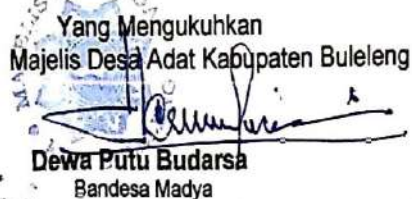 Yang Mengukuhkan
Majelis Desa Adat Kabupaten Buleleng
Dewa Putu Budarsa
Bandesa Madya